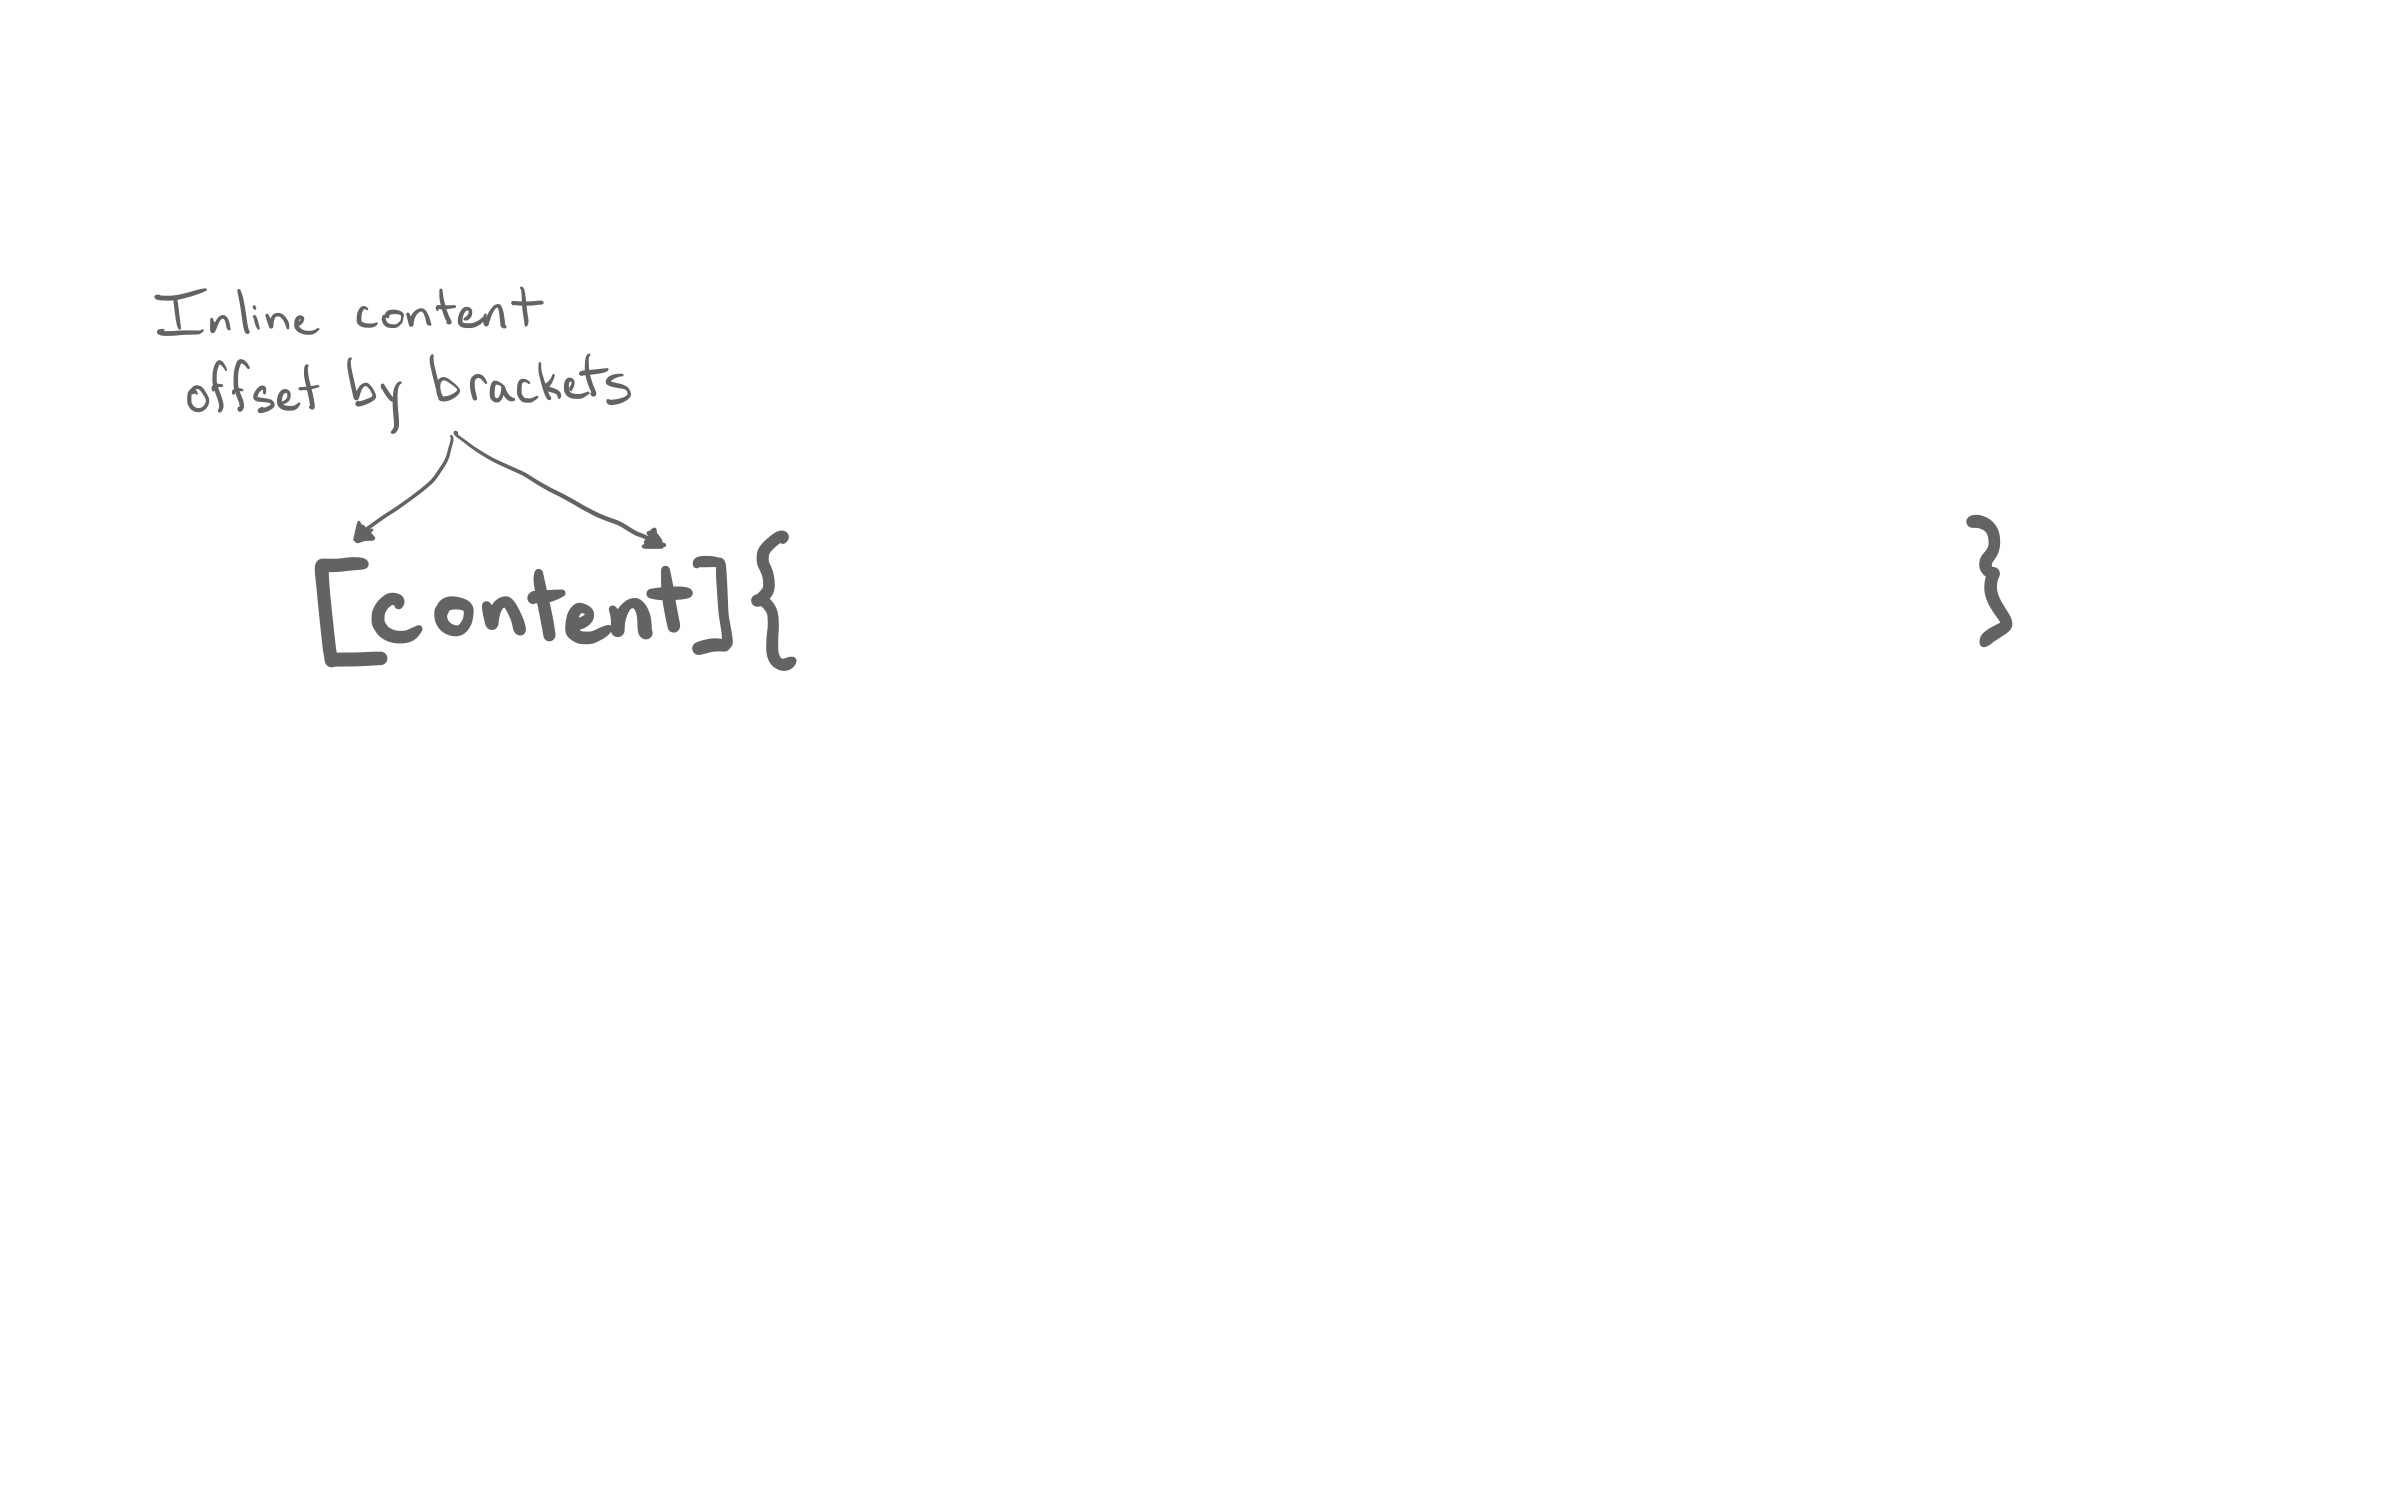 Inline content
offset by brackets
[content]{ }